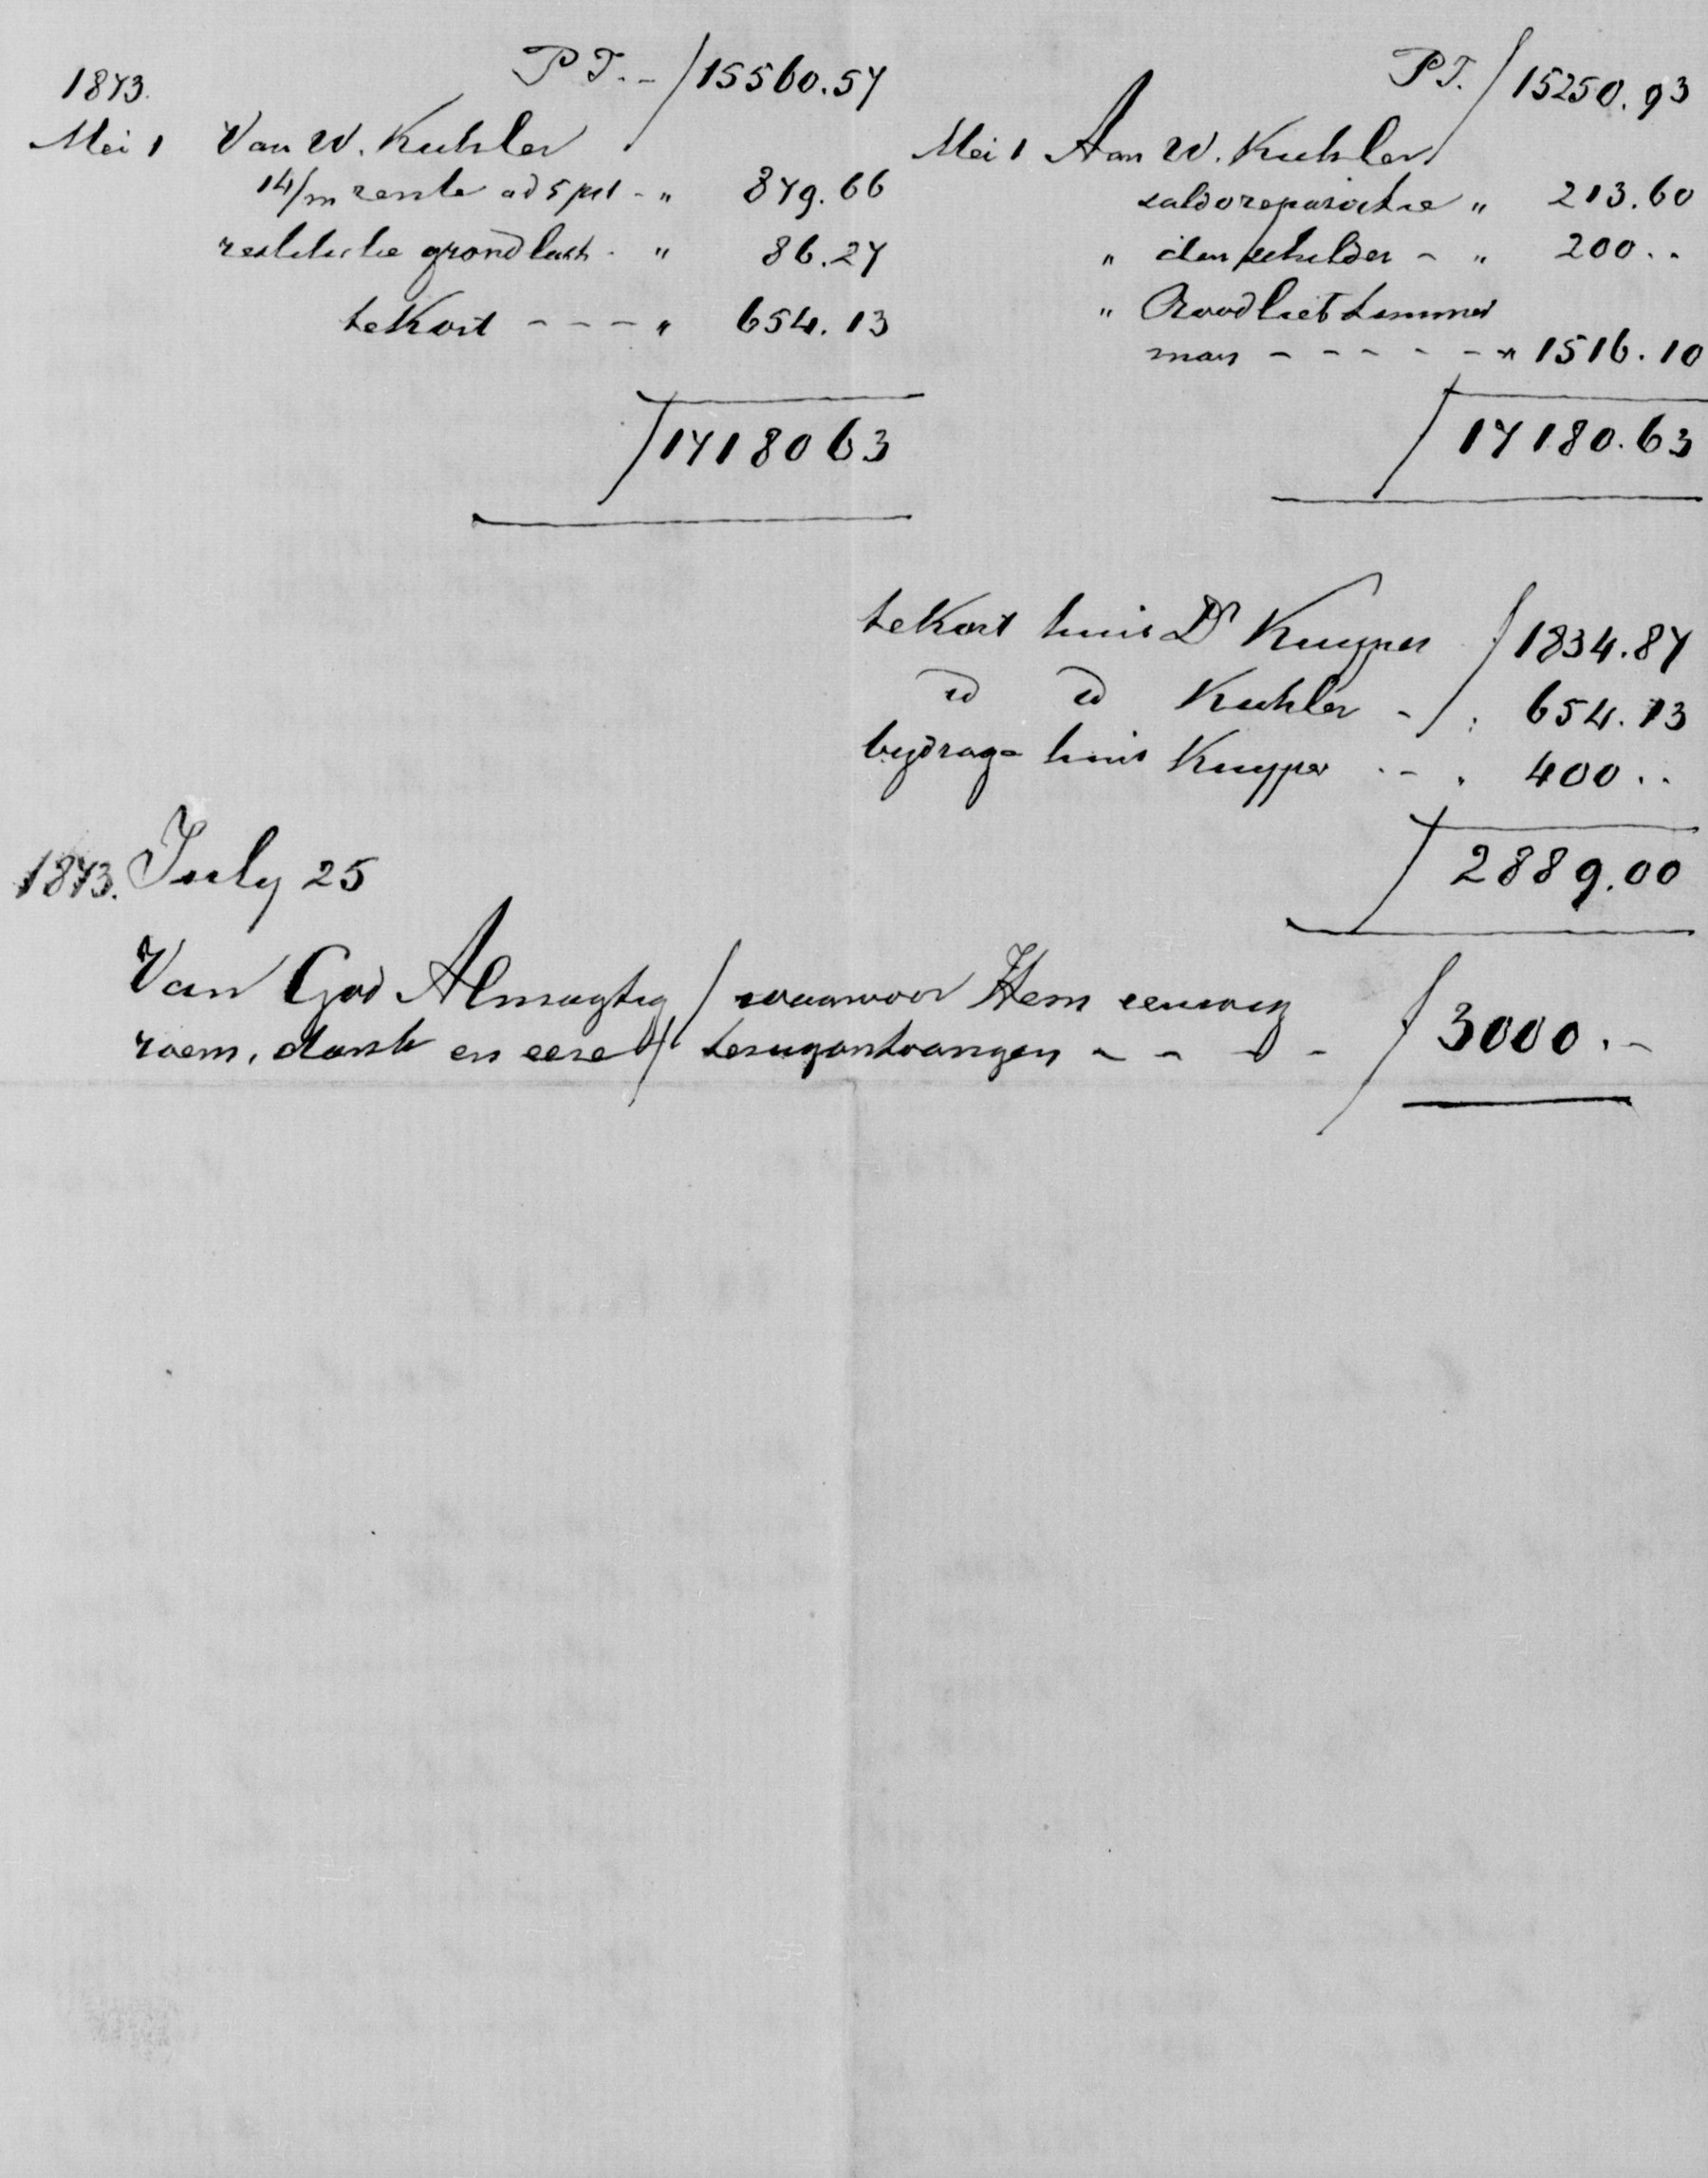 1873. P T. - ƒ 15560.57
Mei 1 Van W. Kuhler
14/m rente ad 5 pct - " 879.66
restitutie grondlast - " 86.27
te Kort - - - - " 654.13
ƒ 17180 63
P T. ƒ 15250.93
Mei 1 Aan W. Kuhler
saldo reparatie " 213.60
" den schilder - " 200 . .
" Roodliebtimmer
man - - - - - - " 1516.10
ƒ 17180.63
te Kort huis Dr Kuyper ƒ 1834.87
id id Kuhler - " 654.13
bydrage huis Kuyper . - " 400 . .
ƒ 2889.00
1873. July 25
Van God Almagtig / waarvoor Hem eeuwig
roem, dank en eere / terugontvangen - - - - ƒ 3000 . -